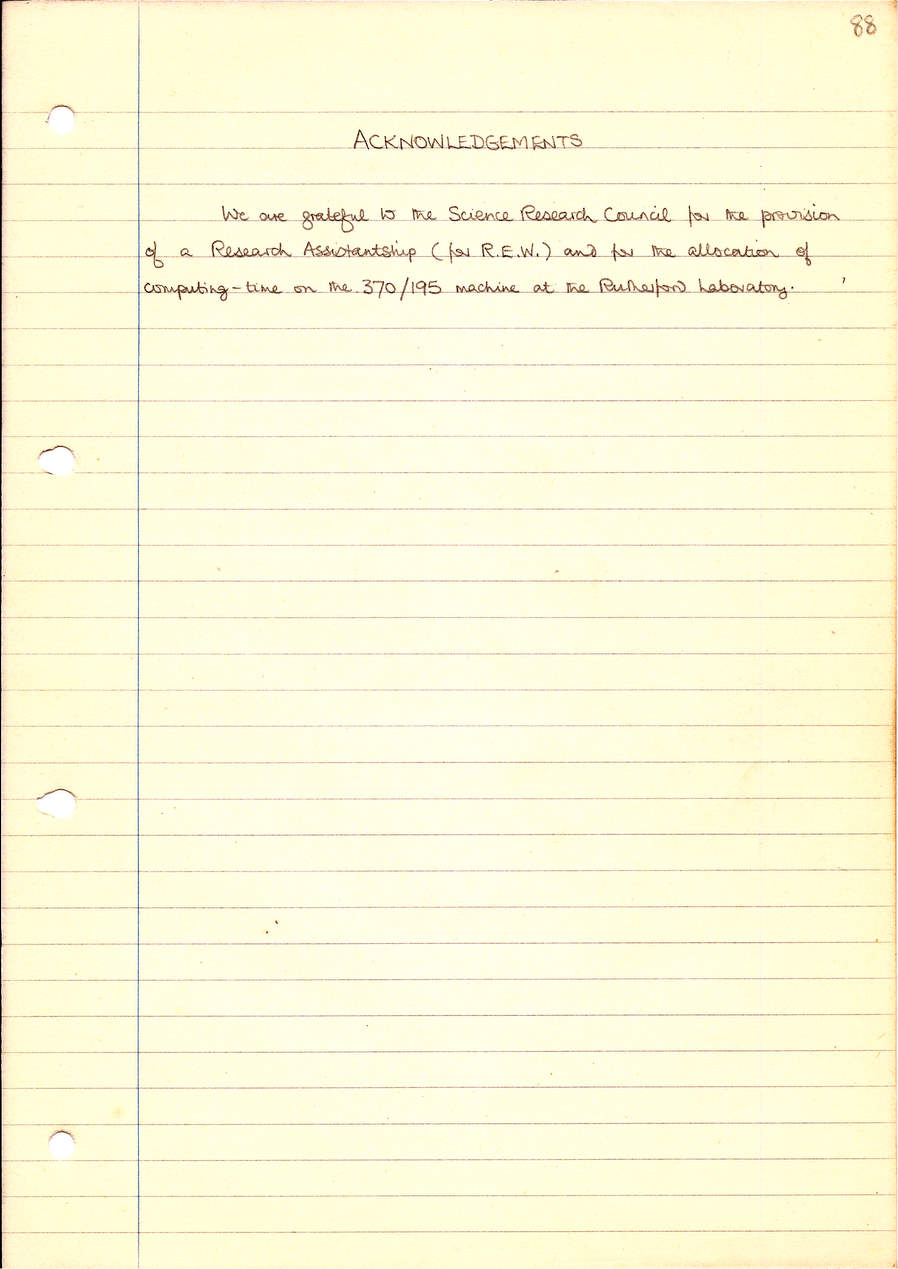 88
ACKNOWLEDGEMENTS
We are grateful to the Science Research Council for the provision
of a Research Assistantship (for R.E.W.) and for the allocation of
computing-time on the 370/195 machine at the Rutherford Laboratory.